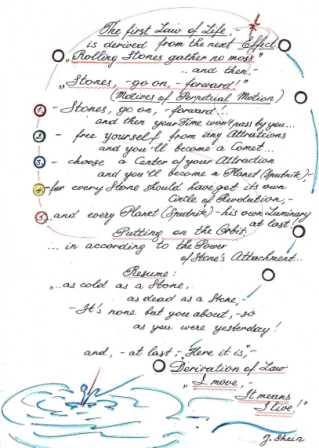 The first Law of Life,-
is derived from the next Effect
„Rolling Stones gather no moss."
...and then,-
„Stones, -go on, -forward!"
(Motives of Perpetual Motion)
1 - Stones, go on, -forward!
and then your Time won't pass by you...
2 - free yourself from any Attrations
and you'll become a Comet...
3 - choose a Center of your Attraction
and you'll become a Planet (Sputnik),-
4 -for every Stone should have got its own
Circle of Revolution,-
5 ..and every Planet (Sputnik) - his own Luminary
at last!
Putting on the Orbit
... in according to the Power
of Stone's Attachment...
Resume:
„..as cold as a Stone,
as dead as a Stone,-
- It's none but you about,-
as you were yesterday!
and, - at last: „Here it is",-
Derivation of Law
„I move,-
It means
I live!"